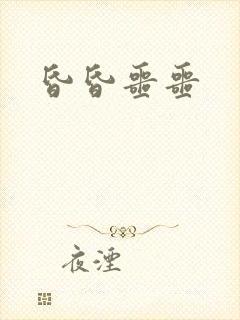 昏昏噩噩
夜湮